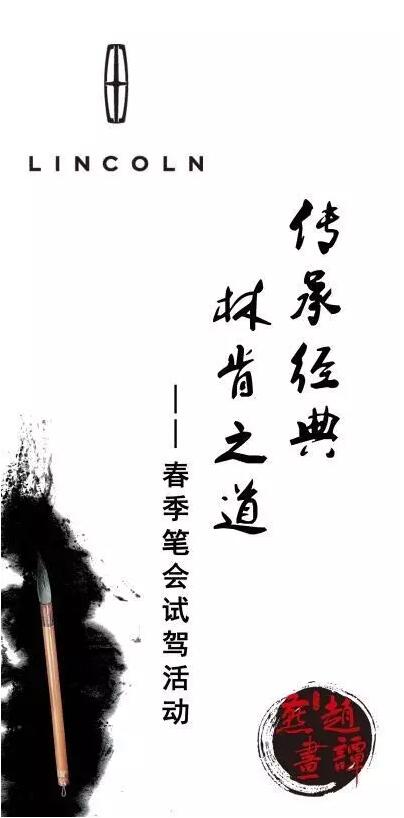 LINCOLN
传承经典
林肯之道
——春季笔会试驾活动
燕趙
畫譚